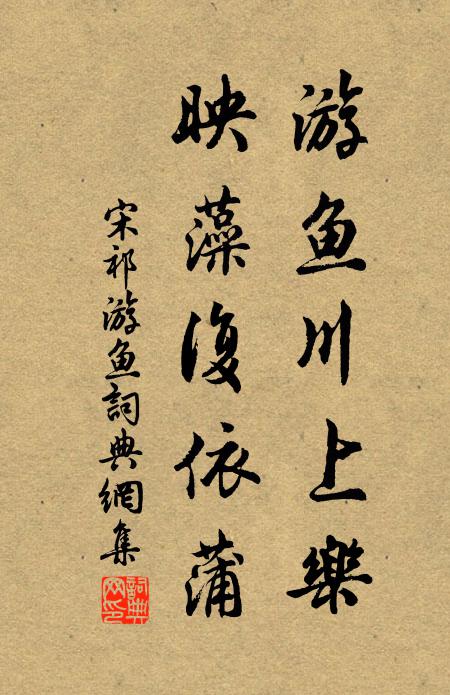 游鱼川上樂
映藻復依蒲
宋祁游鱼詞典網集
詞典网印